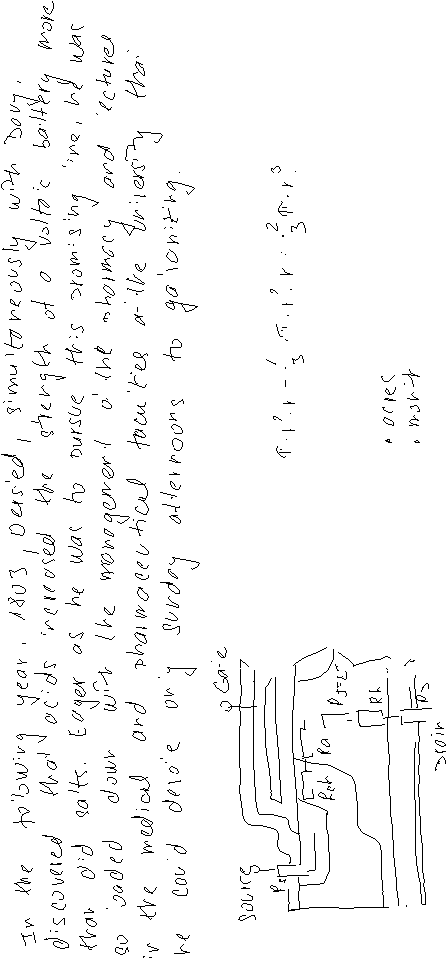 In the following year, 1803, Oersted, simultaneously with Davy,
discovered that acids increased the strength of a voltaic battery more
than did salts. Eager as he was to pursue this promising line, he was
so loaded down with the management of the pharmacy and lectures
in the medical and pharmaceutical faculties at the University that
he could devote only Sunday afternoons to galvanizing.
π · r² · r - 1/3 · π · r² · r = 2/3 π · r³
• acres
Source
Gate
Rch
Ra
Rs
Drain